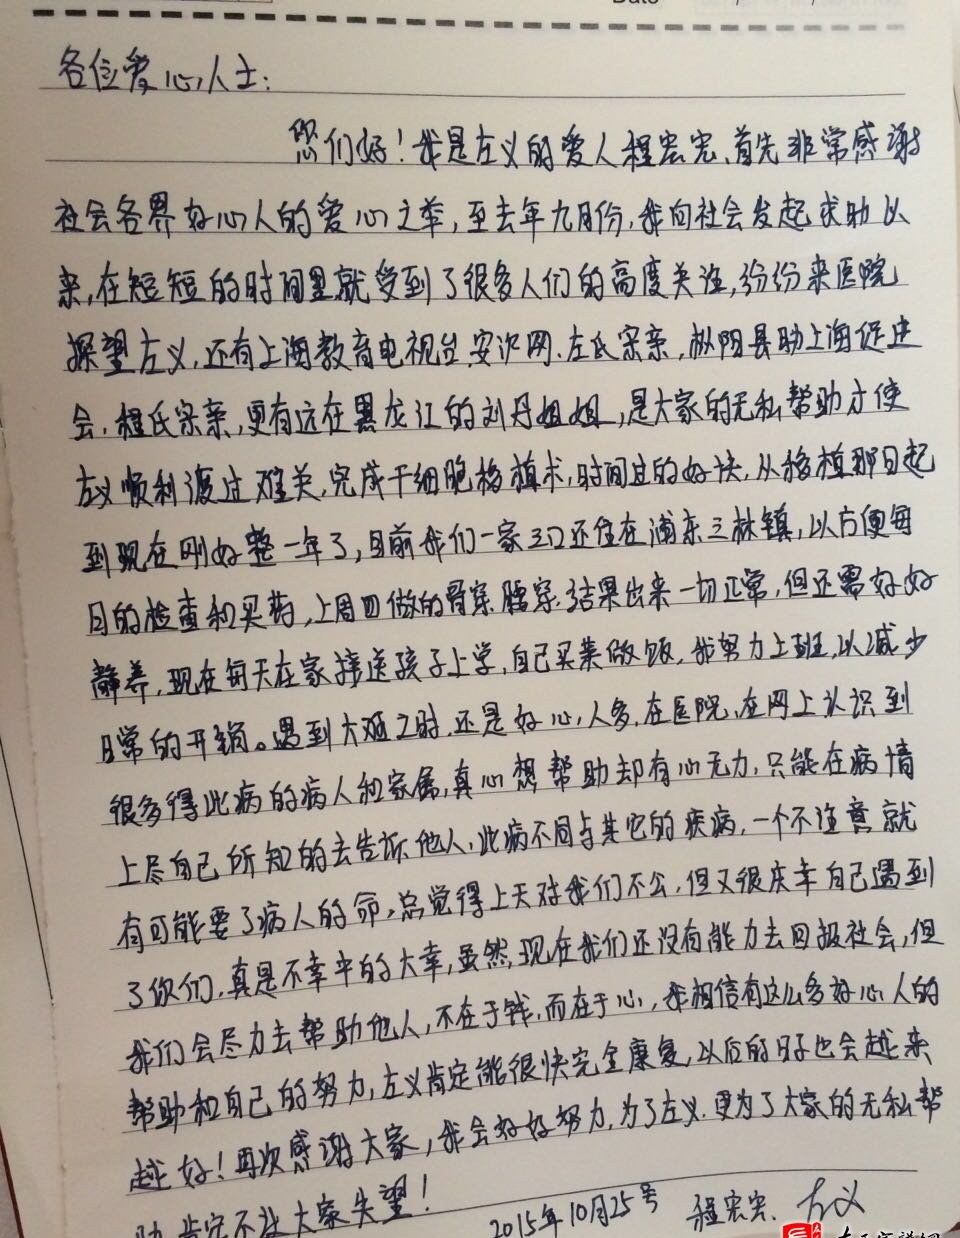 Date / /
各位爱心人士:
您们好!我是左义的爱人程宏宪、首先非常感谢
社会各界好心人的爱心之举,至去年九月份,我向社会发起求助以
来,在短短的时间里就受到了很多人们的高度关注,纷纷来医院
探望左义,还有上海教育电视台、安沪网、左氏宗亲,枞阳县助上海促进
会,程氏宗亲,更有远在黑龙江的刘丹姐姐,是大家的无私帮助才使
左义顺利渡过难关,完成干细胞移植术,时间过的好快,从移植那日起
到现在刚好整一年了,目前我们一家三口还住在浦东三林镇,以方便每
日的检查和买药,上周四做的骨穿、腰穿、结果出来一切正常,但还需好好
静养,现在每天在家接送孩子上学,自己买菜做饭,我努力上班,以减少
日常的开销。遇到大难之时,还是好心人多,在医院、在网上认识到
很多得此病的病人和家属,真心想帮助却有心无力,只能在病情
上尽自己所知的去告诉他人,此病不同与其它的疾病,一个不注意就
有可能要了病人的命,总觉得上天对我们不公,但又很庆幸自己遇到
了你们,真是不幸中的大幸,虽然,现在我们还没有能力去回报社会,但
我们会尽力去帮助他人,不在于钱,而在于心,我相信有这么多好心人的
帮助和自己的努力,左义肯定能很快完全康复,以后的日子也会越来
越好!再次感谢大家,我会好好努力,为了左义、更为了大家的无私帮
助肯定不让大家失望!
2015年10月25号 程宏宪、左义